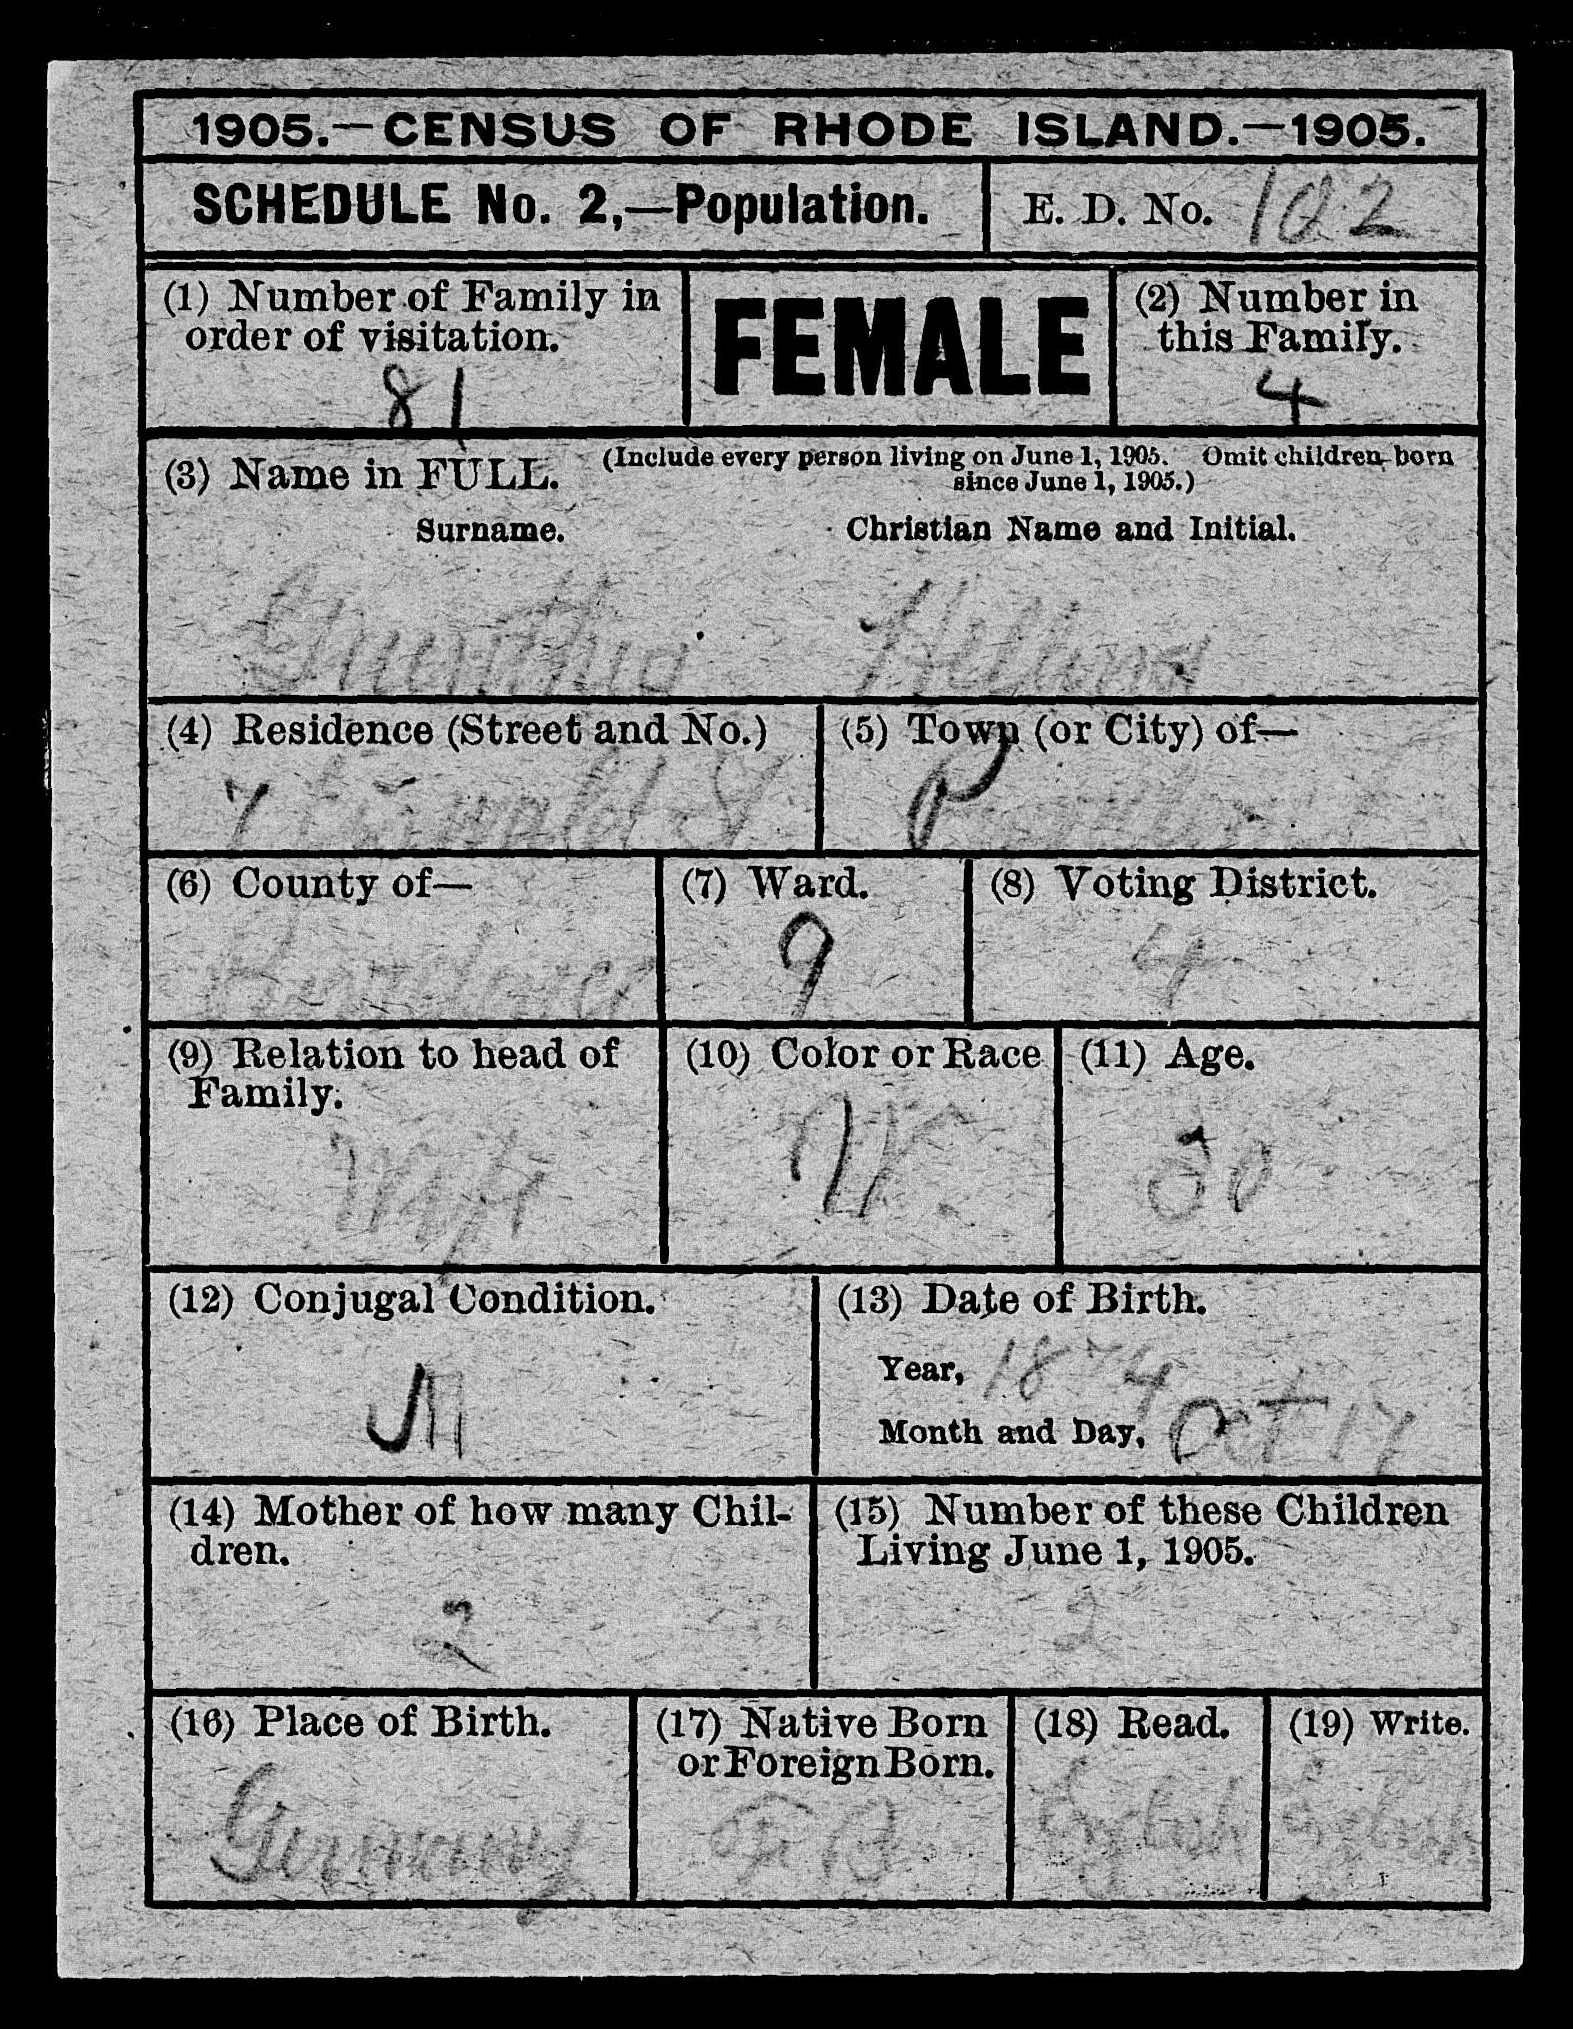 1905.—CENSUS OF RHODE ISLAND.—1905.
SCHEDULE No. 2,—Population.
E. D. No. 102
(1) Number of Family in
order of visitation.
81
FEMALE
(2) Number in
this Family.
4
(3) Name in FULL.
(Include every person living on June 1, 1905. Omit children born
since June 1, 1905.)
Surname.
Christian Name and Initial.
(4) Residence (Street and No.)
7
(5) Town (or City) of—
(6) County of—
(7) Ward.
9
(8) Voting District.
4
(9) Relation to head of
Family.
Wife
(10) Color or Race
W
(11) Age.
30
(12) Conjugal Condition.
M
(13) Date of Birth.
Year, 1874
Month and Day, Oct 17
(14) Mother of how many Chil-
dren.
2
(15) Number of these Children
Living June 1, 1905.
2
(16) Place of Birth.
Germany
(17) Native Born
or Foreign Born.
F B
(18) Read.
(19) Write.